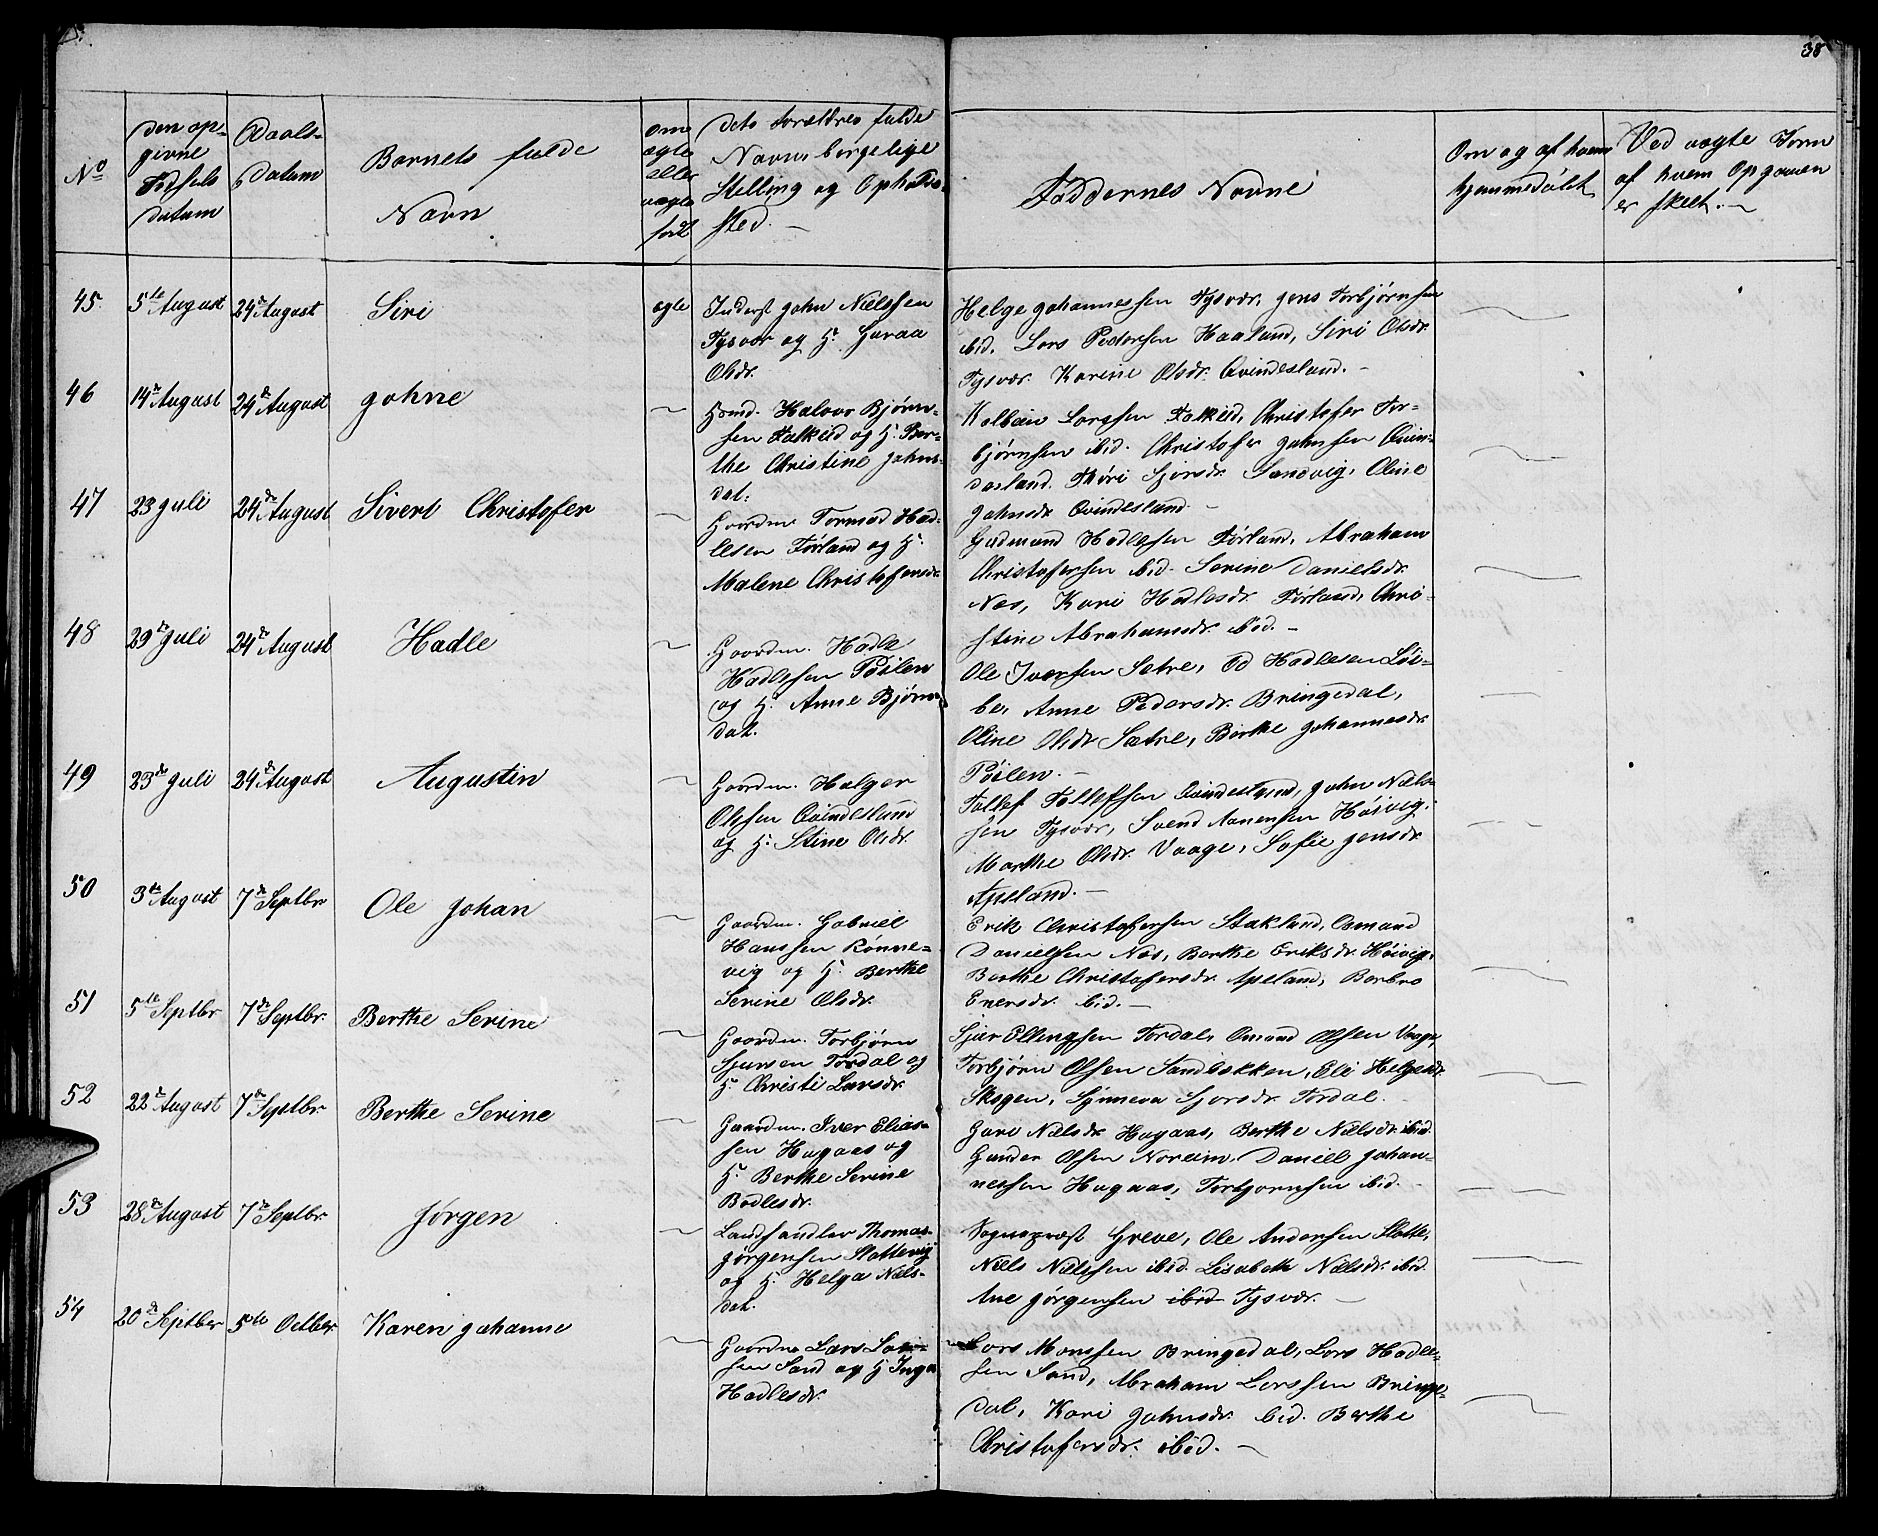 38
No
Den op-
givne
Fødsels
datum
Daabs-
Datum
Barnets fulde
Navn
Om
ægte
eller
uægte
født
Dets Forældres fulde
Navn, borgelige
Stilling og Opholds-
sted. —
Faddernes Navne
Om og af hvem
hjemmedøbt
Ved uægte Børn
af hvem Opgaven
er skeet. —
45. 5te August 24de August Siri ægte
Inderst John Nielssen
Tysvær og H. Guraa
Olsdr.
Helge Johannessen Tysvær, Jens Torbjørnsen
ibid. Lars Pedersen Haaland, Siri Olsdr.
Tysvær. Karine Olsdr. Qvindesland. —
46 14de August 24de August Johne —
Hmd. Halvor Bjørn-
sen Falkeid og H. Ber-
the Christine Johns-
dat:
Kolbein Larssen Falkeid, Christofer Tor-
bjørnsen ibid. Christofer Johnsen Qvin-
desland. Thøri Sjørsdr. Sandvig, Oline
Johnsdr. Qvindesland. —
47 23 Juli 24de August Sivert Christofer —
Gaardm. Tormod Had-
lesen Førland og H.
Malene Christofersdr.
Gudmund Hadlesen Førland, Abraham
Christofersen ibid. Serine Danielsdr.
Nes, Kari Hadlesdr. Førland, Chri-
stine Abrahamsdr. ibid. —
48 29de Juli 24de August Hadle —
Gaardm. Hadle
Hadlessen Pøilen
og H. Anne Bjørns-
dat.
Ole Iversen Sætre, Ed Hadlesen Lii-
be, Anne Pedersdr. Bringedal,
Oline Olsdr. Sætre, Berthe Johannesdr.
Pøilen. —
49 23de Juli 24de August Augustin —
Gaardm. Holger
Olssen Qvindesland
og H. Stine Olsdr.
Tollef Tollefssen Qvindesland, John Niels-
sen Tysvær, Svend Aanensen Høivig.
Marthe Olsdr. Vaage, Sofie Jensdr.
Apeland. —
50 3de August 7de Septbr Ole Johan —
Gaardm. Gabriel
Hanssen Rønne-
vig og H. Berthe
Serine Olsdr.
Erik Christofersen Stakland, Osmund
Danielsen Nes, Berthe Eriksdr. Høivig,
Berthe Christofersdr. Apeland, Barbro
Enersdr. ibid. —
51 5te Septbr 7de Septbr. Berthe Serine —
Gaardm. Torbjørn
Sjursen Tordal og
H. Christi Larsdr.
Sjur Ellingsen Tordal, Omund Olsen Vaage,
Torbjørn Olsen Sandbekken, Eli Helgesdr.
Skogen, Synneva Sjørsdr. Tordal. —
52 22de August 7de Septbr Berthe Serine —
Gaardm. Iver Elias-
sen Hagaas og
H. Berthe Serine
Bodlesdr.
Guri Nielsdr. Hagaas, Berthe Nielsdr. ibid.
Gunder Olsen Noreim, Daniel Johan-
nessen Hagaas, Torbjørnsen ibid. —
53 28de August 7de Septbr. Jørgen —
Landhandler Thomas
Jørgensen Slottevig
og H. Helga Niels-
dat.
Sognepræst Greve, Ole Andersen Slotte,
Niels Nielssen ibid. Lisabeth Nielsdr. ibid.
Ane Jørgensen ibid Tysvær. —
54 20de Septber 5te Octber Karen Johanne —
Gaardm. Lars Lar-
sen Sand og H Inga
Hadlesdr.
Lars Monssen Bringedal, Lars Hadle-
sen Sand, Abraham Larssen Bringe-
dal, Kari Johnsdr. ibid. Berthe
Christofersdr. ibid. —